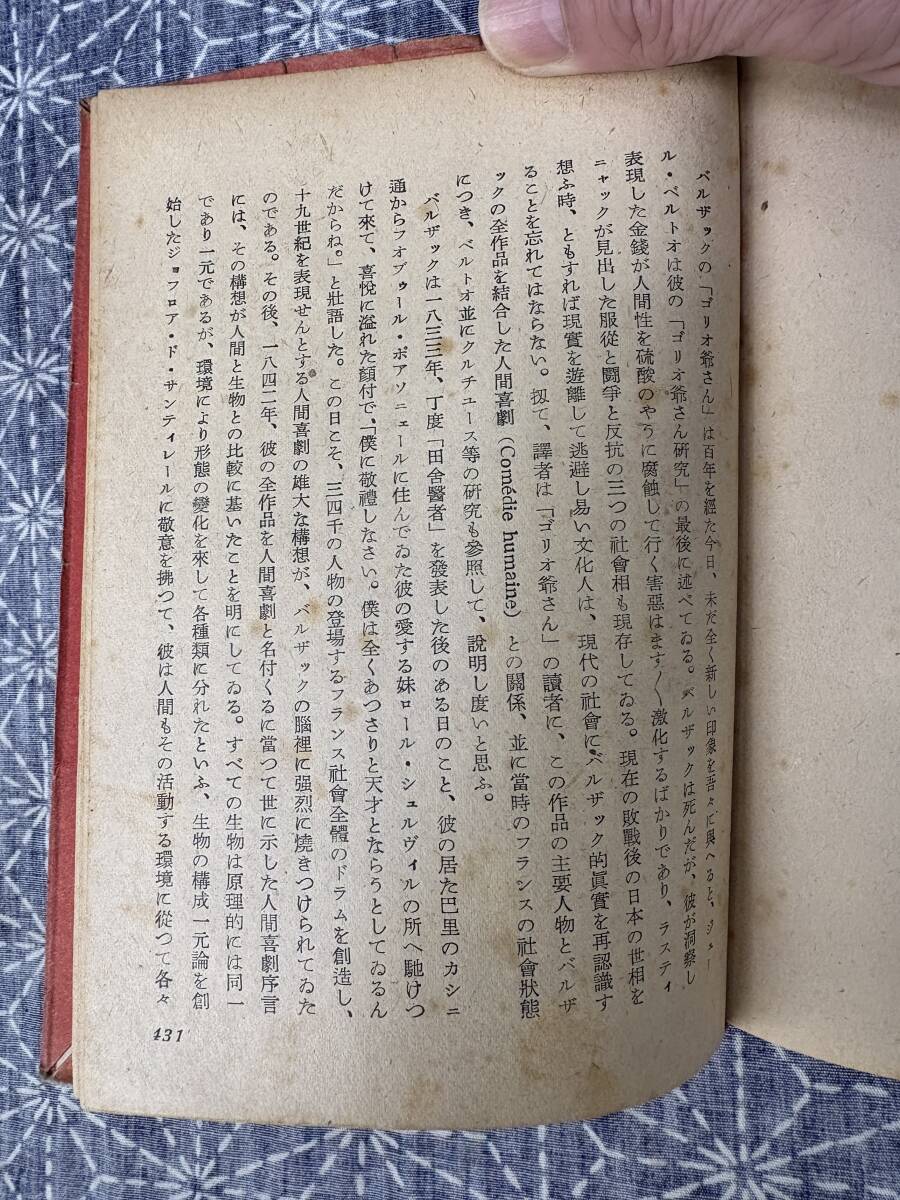 バルザックの「ゴリオ爺さん」は百年を經た今日、未だ全く新しい印象を吾々に與へると、ジュー
ル・ベルトオは彼の「ゴリオ爺さん研究」の最後に述べてゐる。バルザックは死んだが、彼が洞察し
表現した金錢が人間性を硫酸のやうに腐蝕して行く害惡はます〱激化するばかりであり、ラスティ
ニャックが見出した服從と鬪爭と反抗の三つの社會相も現存してゐる。現在の敗戰後の日本の世相を
想ふ時、ともすれば現實を遊離して逃避し易い文化人は、現代の社會にバルザック的眞實を再認識す
ることを忘れてはならない。扨て、譯者は「ゴリオ爺さん」の讀者に、この作品の主要人物とバルザ
ックの全作品を結合した人間喜劇(Comédie humaine)との關係、並に當時のフランスの社會狀態
につき、ベルトオ並にクルチユース等の研究も參照して、說明し度いと思ふ。
バルザックは一八三三年、丁度「田舍醫者」を發表した後のある日のこと、彼の居た巴里のカシニ
通からフオブゥール・ポアソニェールに住んでゐた彼の愛する妹ロール・シュルヴィルの所へ馳けつ
けて來て、喜悅に溢れた顏付で、「僕に敬禮しなさい。僕は全くあつさりと天才とならうとしてゐるん
だからね。」と壯語した。この日こそ、三四千の人物の登場するフランス社會全體のドラムを創造し、
十九世紀を表現せんとする人間喜劇の雄大な構想が、バルザックの腦裡に强烈に燒きつけられてゐた
のである。その後、一八四二年、彼の全作品を人間喜劇と名付くるに當つて世に示した人間喜劇序言
には、その構想が人間と生物との比較に基いたことを明にしてゐる。すべての生物は原理的には同一
であり一元であるが、環境により形態の變化を來して各種類に分れたといふ、生物の構成一元論を創
始したジョフロア・ド・サンティレールに敬意を拂つて、彼は人間もその活動する環境に從つて各々
431